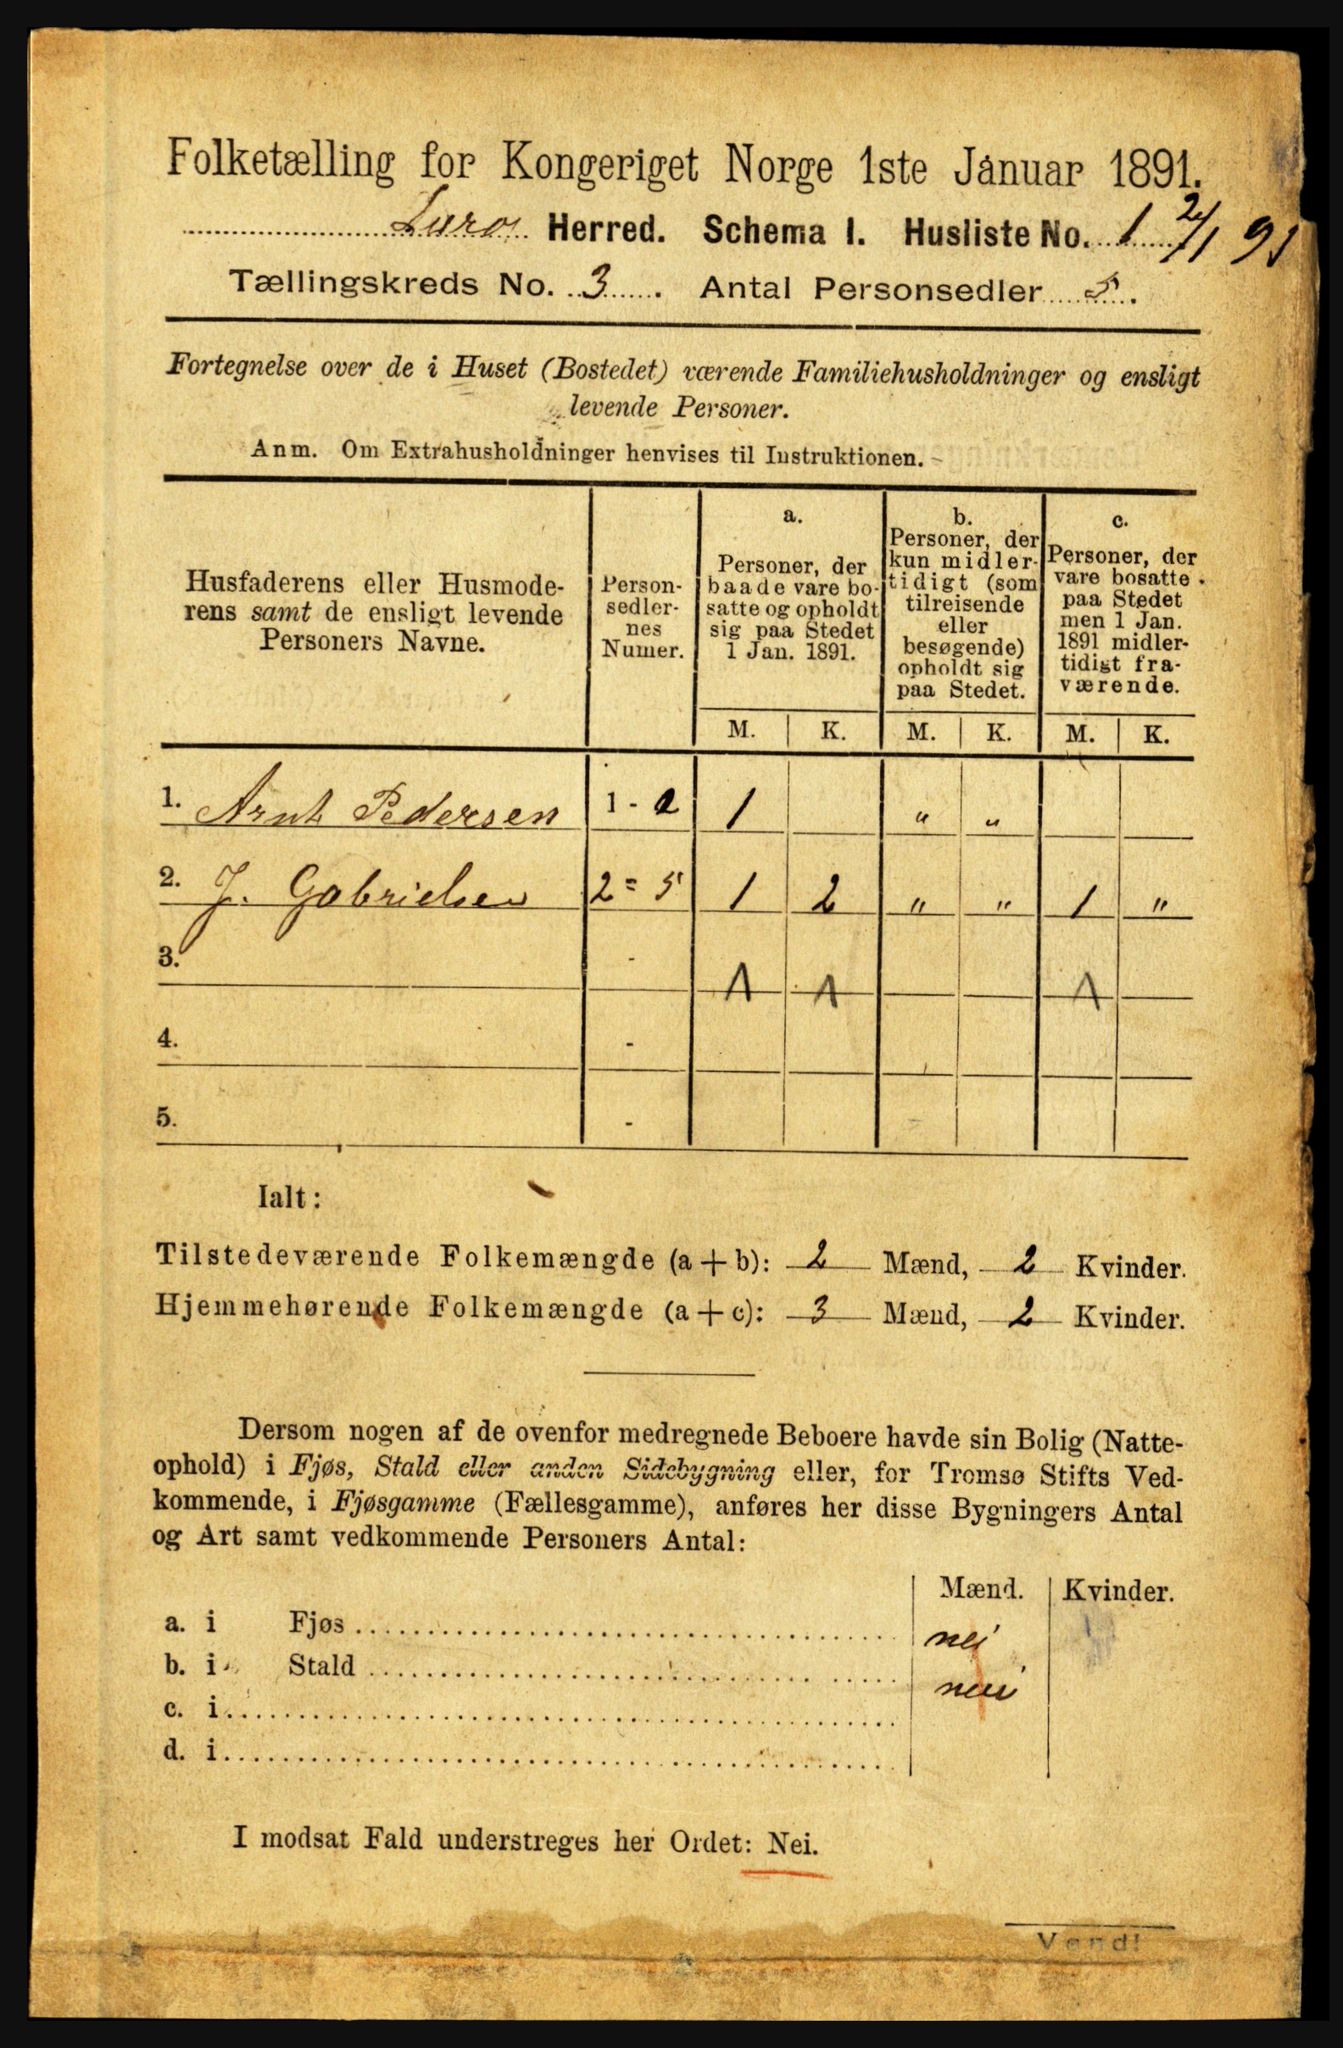 Folketælling for Kongeriget Norge 1ste Januar 1891.
Lurø Herred. Schema I. Husliste No. 1 2/1 91
Tællingskreds No. 3. Antal Personsedler 5.
Fortegnelse over de i Huset (Bostedet) værende Familiehusholdninger og ensligt
levende Personer.
Anm. Om Extrahusholdninger henvises til Instruktionen.
Husfaderens eller Husmode-
rens samt de ensligt levende
Personers Navne.
Person-
sedler-
nes
Numer.
a.
Personer, der
baade vare bo-
satte og opholdt
sig paa Stedet
1 Jan. 1891.
b.
Personer, der
kun midler-
tidigt (som
tilreisende
eller
besøgende)
opholdt sig
paa Stedet.
c.
Personer, der
vare bosatte
paa Stedet
men 1 Jan.
1891 midler-
tidigt fra-
værende.
M. K. M. K. M. K.
1. Arnt Pedersen 1 - 1 " "
2. J. Gabrielsen 2 = 5 1 2 " " 1 "
3. - 1 1 1
4. -
5. -
Ialt:
Tilstedeværende Folkemængde (a + b): 2 Mænd, 2 Kvinder.
Hjemmehørende Folkemængde (a + c): 3 Mænd, 2 Kvinder.
Dersom nogen af de ovenfor medregnede Beboere havde sin Bolig (Natte-
ophold) i Fjøs, Stald eller anden Sidebygning eller, for Tromsø Stifts Ved-
kommende, i Fjøsgamme (Fællesgamme), anføres her disse Bygningers Antal
og Art samt vedkommende Personers Antal:
Mænd. Kvinder.
a. i Fjøs nei
b. i Stald nei
c. i
d. i
I modsat Fald understreges her Ordet: Nei.
Vend!